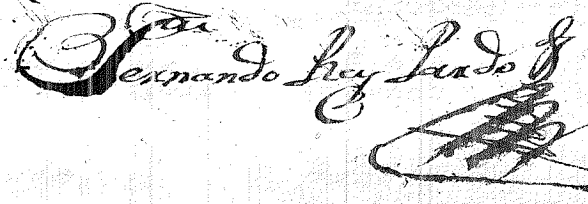 Fernando Rey Pardo